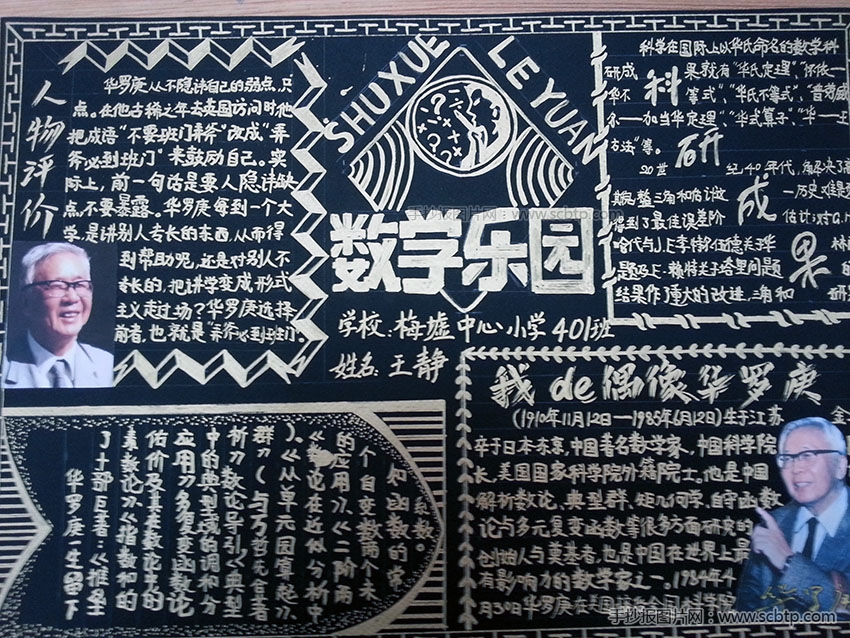 人物评价
华罗庚从不隐讳自己的弱点,只
点。在他古稀之年去英国访问时他
把成语"不要班门弄斧"改成"弄
斧必到班门"来鼓励自己。实
际上,前一句话是要人隐讳缺
点,不要暴露。华罗庚每到一个大
学,是讲别人专长的东西,从而得
到帮助呢,还是对别人不
专长的,把讲学变成形式
主义走过场?华罗庚选择
前者,也就是"弄斧必到班门"。
SHUXUE LEYUAN
数学乐园
学校:梅墟中心小学401班
姓名:王静
手抄报图片网:www.scbtp.com
科研成果
科学在国际上以华氏命名的数学科
研成果就有"华氏定理"、"怀依一
华不等式"、"华氏不等式"、"普劳威
尔一加当华定理"、"华式算子"、"华一王
方法"等。
20世纪40年代,解决了高
一历史难题
得到了最佳误差阶估计;对G.H
哈代与J.E李特尔伍德关于华林问
题及E.赖特关于塔里问题的
结果作了重大的改进,三角和研
我de偶像华罗庚
(1910年11月12日—1985年6月12日)生于江苏金
卒于日本东京,中国著名数学家,中国科学院
长,美国国家科学院外籍院士。他是中国
解析数论、典型群、矩几何学、自守函数
论与多元复变函数等很多方面研究的
创始人与奠基者,也是中国在世界上最
有影响力的数学家之一。1984年4
月30日华罗庚在美国
华罗庚一生留下
了十部巨著:《堆垒
素数论》《指数和的
估价及其在数论中的
应用》《多复变函数论
中的典型域的调和分
析》《数论导引》《典型
群》(与万哲先合著
)、《从单元圆谈起》、
《数论在近似分析中
的应用》《二阶两
个自变数两个未
知函数的常
系数。
手抄报图片网:www.scbtp.com